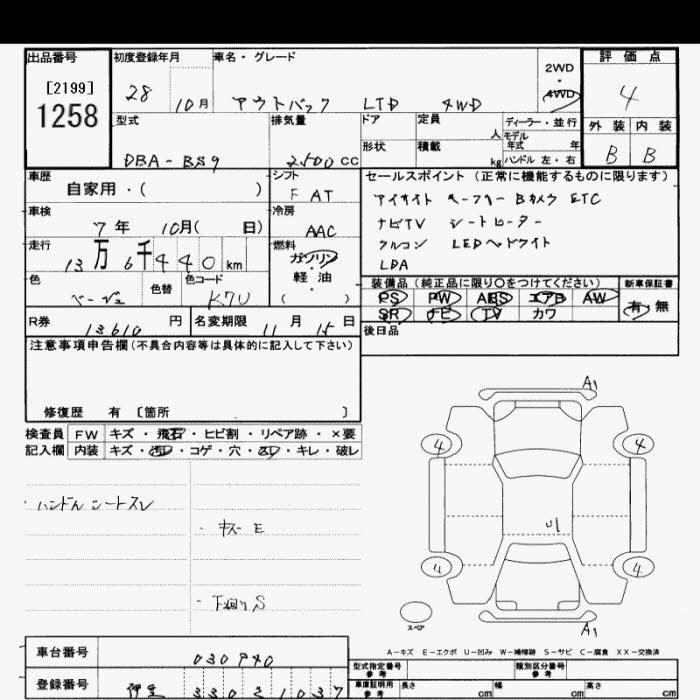 出品番号 初度登録年月 車名・グレード 2WD・4WD 評価点
[2199]
1258
28 10月 アウトバック LTD 4WD 4
型式 排気量 ドア 定員 人 ディーラー・並行 外装 内装
モデル年式 年
形状 積載 kg ハンドル 左・右
DBA-BS9 2500 CC B B
車歴 シフト セールスポイント (正常に機能するものに限ります)
自家用・( ) F AT アイサイト キーフリー Bカメラ ETC
車検 冷房 ナビTV シートヒーター
7年 10月( 日) AAC クルコン LEDヘッドライト
走行 燃料 LDA
13万6千440km ガソリン・軽油 ( )
色 色替 色コード 装備品 (純正品に限り〇をつけてください) 新車保証書
ベージュ K7U PS PW ABS エアB AW 有・無
SR TV カワ
R券 13610円 名変期限 11月15日 後日品
注意事項申告欄(不具合内容等は具体的に記入して下さい)
修復歴 有 〔箇所 〕
検査員 FW キズ・飛石・ヒビ割・リペア跡・×要
記入欄 内装 キズ・汚・コゲ・穴・・キレ・破レ
ハンドル シートスレ
キズ E
下廻りS
A1
4 4
U1
4 4
スペア A1
A-キズ E-エクボ U-凹み W-補修跡 S-サビ C-腐食 XX-交換済
車台番号 030940
型式指定番号 参考 類別区分番号 参考
登録番号 330 2 1037
車庫証明用 参考 長さ cm 幅 cm 高さ cm